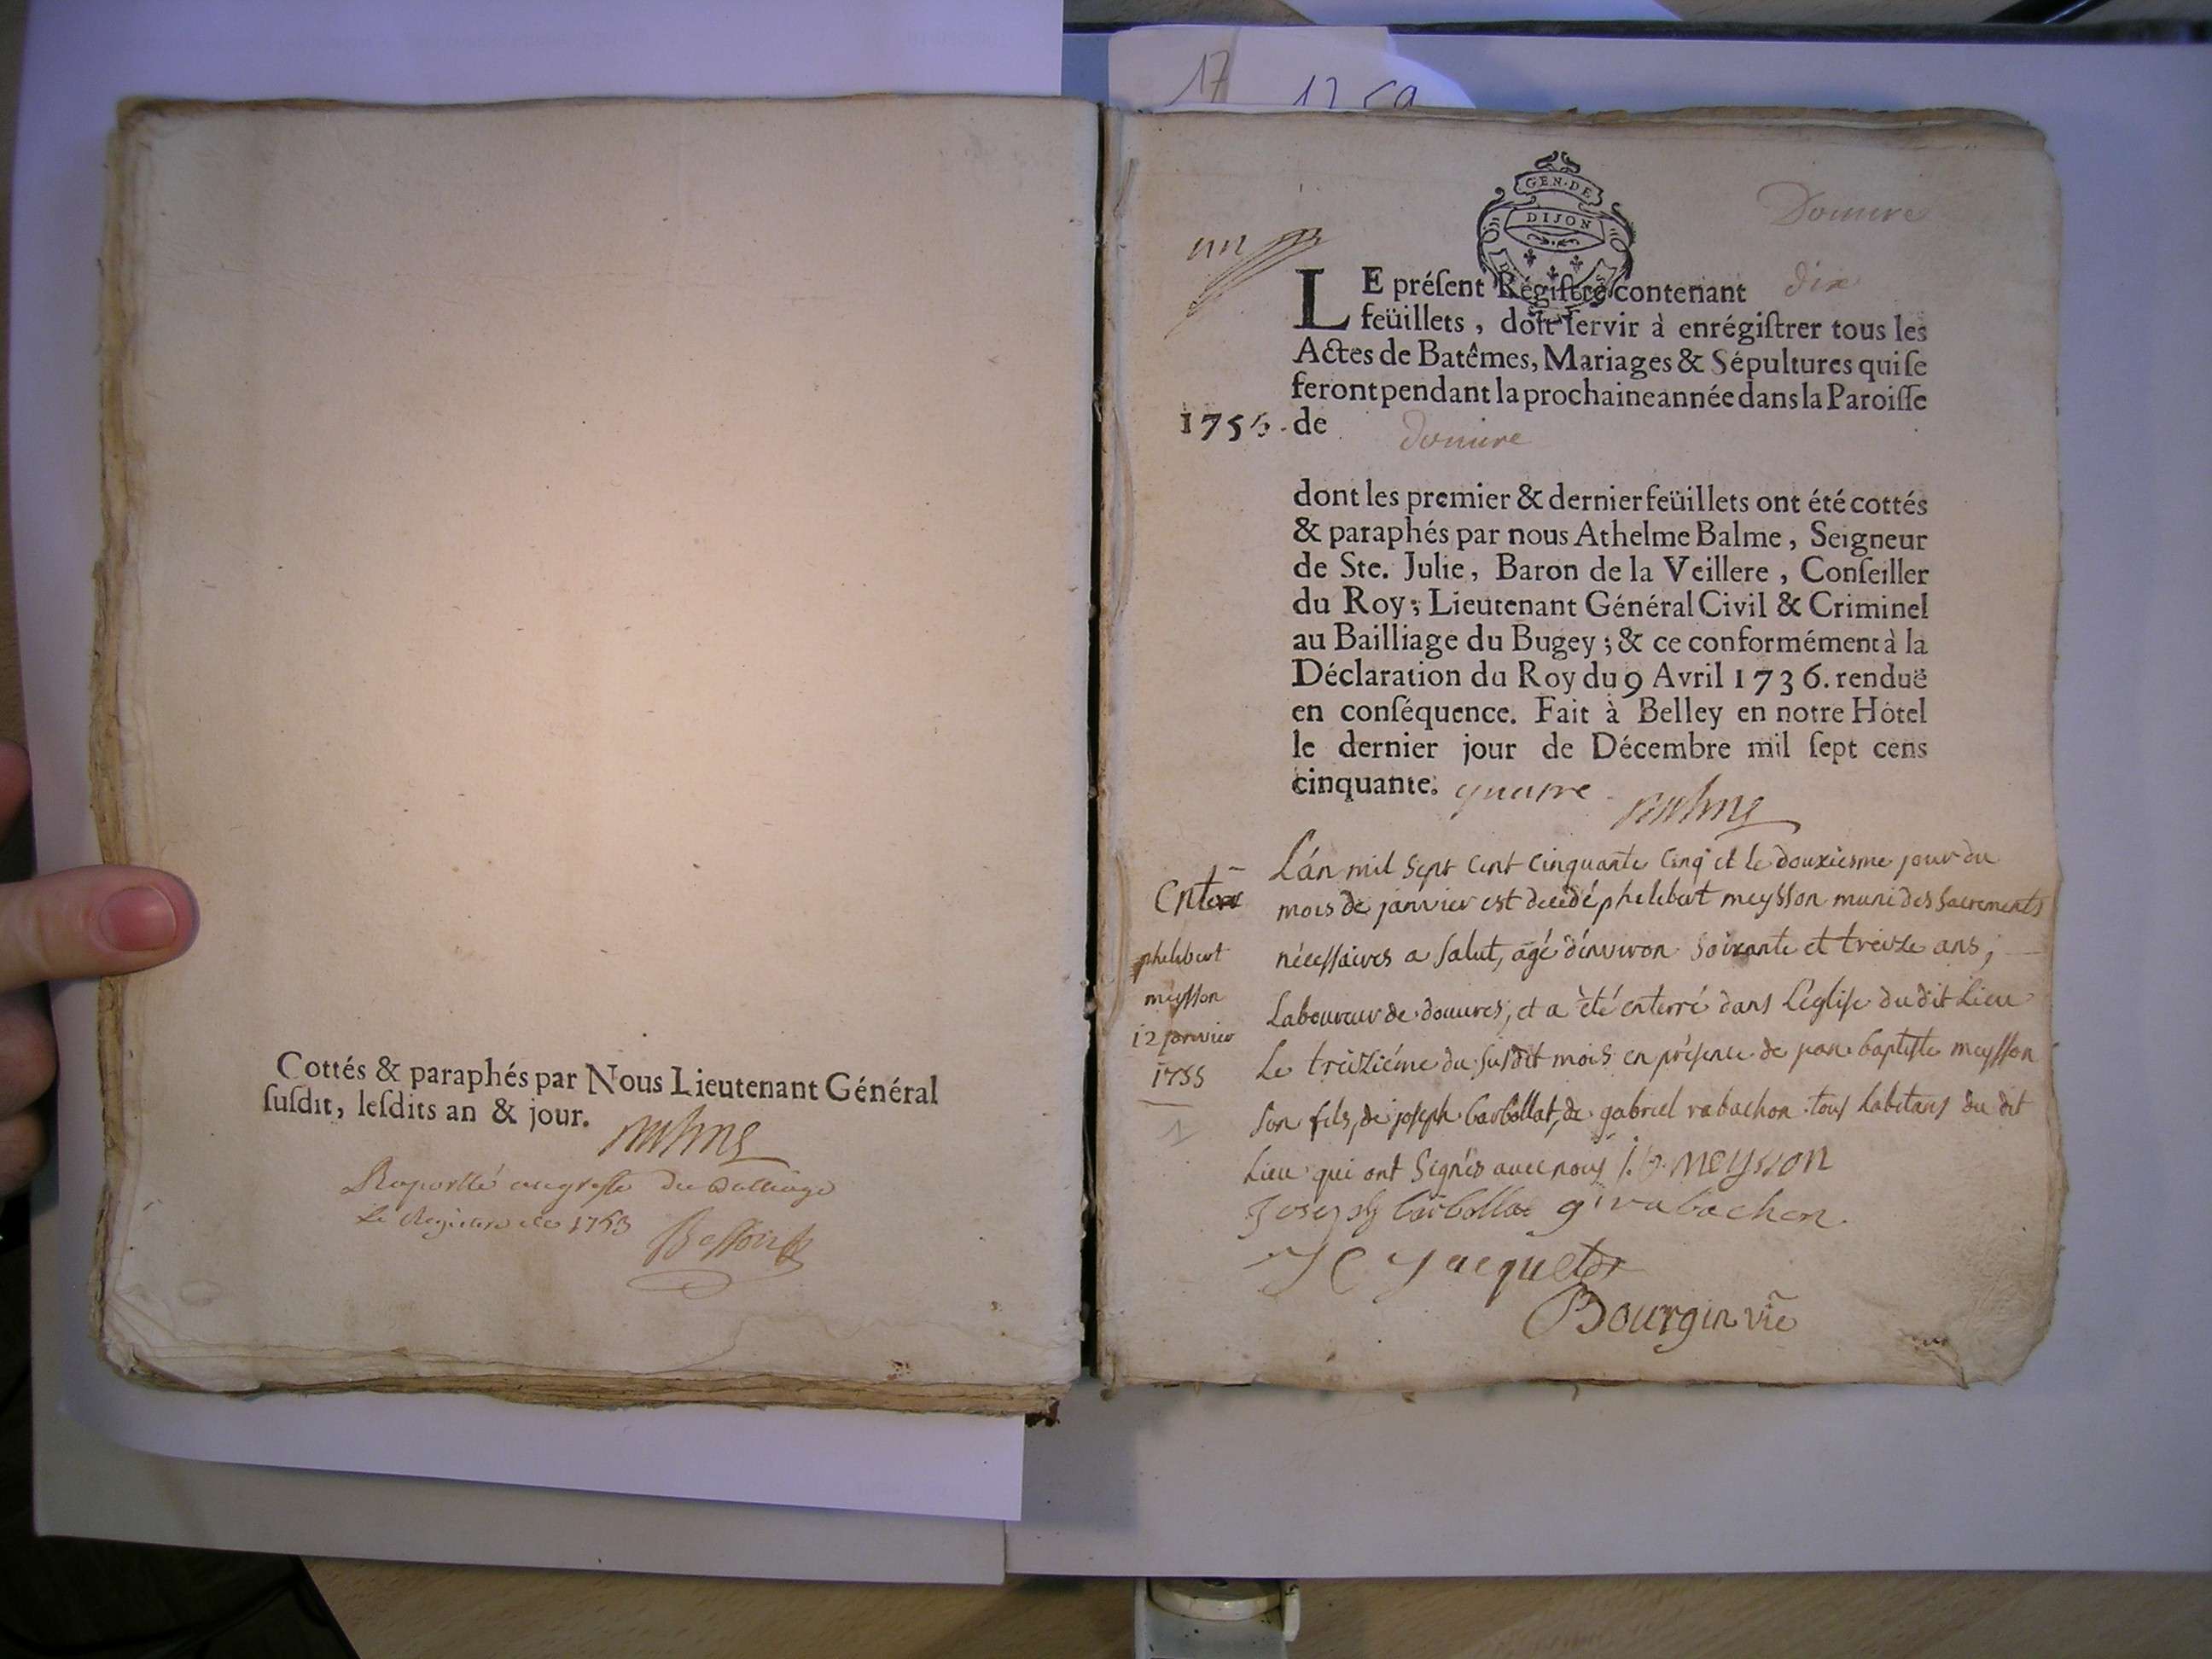 Cottés & paraphés par Nous Lieutenant Général
ſuſdit, leſdits an & jour.
Balme
Raporté au greffe du Balliage
Le Registre de 1753
17 1759
GEN·DE
DIJON
un
Douvre
LE préſent Régiſtre contenant dix
feüillets, doit ſervir à enrégiſtrer tous les
Actes de Batêmes, Mariages & Sépultures qui ſe
feront pendant la prochaine année dans la Paroiſſe
1755. de douvre
dont les premier & dernier feüillets ont été cottés
& paraphés par nous Athelme Balme, Seigneur
de Ste. Julie, Baron de la Veillere, Conſeiller
du Roy; Lieutenant Général Civil & Criminel
au Bailliage du Bugey; & ce conformément à la
Déclaration du Roy du 9 Avril 1736. renduë
en conſéquence. Fait à Belley en notre Hôtel
le dernier jour de Décembre mil ſept cens
cinquante. quatre
Balme
L'án mil sept cent cinquante cinq et le douxiesme jour du
mois de janvier est decedé phelebert meysson muni des sacrements
nécessaires a salut, agé d'environ soixante et treize ans,
Laboureur de douvres, et a été enterré dans L'église du dit Lieu
Le treiziéme du susdit mois en présence de jean baptiste meysson
son fils, de joseph barbollat, de gabriel rabachon tous habitans du dit
Lieu qui ont signés avec nous j. b. meysson
Joseph barbollat g rabachon
Jacquet
Bourgin vic̃
phelebert
meysson
12 janvier
1755
1